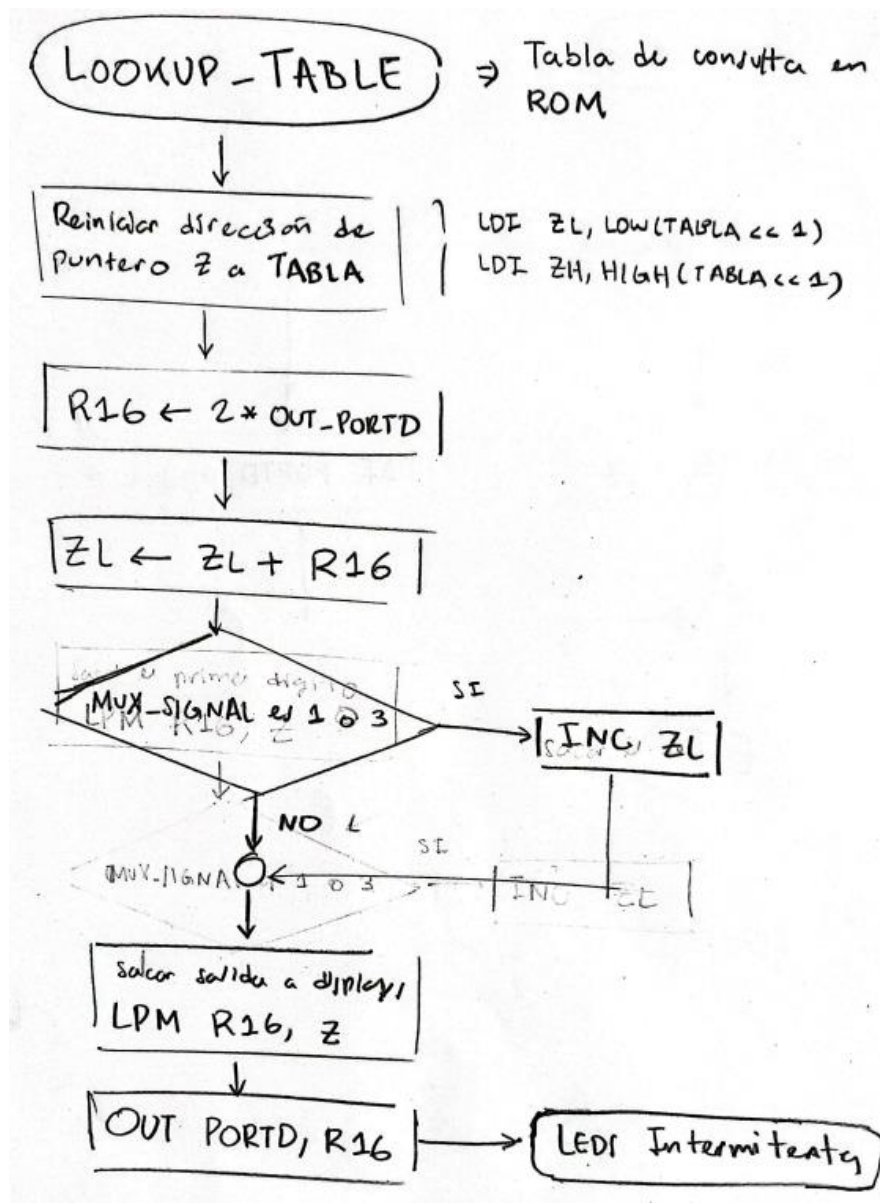 LOOKUP_TABLE
⇒ Tabla de consulta en
ROM
Reiniciar dirección de
puntero Z a TABLA
LDI ZL, LOW(TABLA << 1)
LDI ZH, HIGH(TABLA << 1)
R16 ← 2 * OUT_PORTD
ZL ← ZL + R16
primer dígito
MUX_SIGNAL es 1 o 3
LPM R16, Z
SI
INC ZL
NO
SI
MUX_SIGNAL 1 o 3
INC ZL
sacar salida a displays
LPM R16, Z
OUT PORTD, R16
LEDs Intermitentes